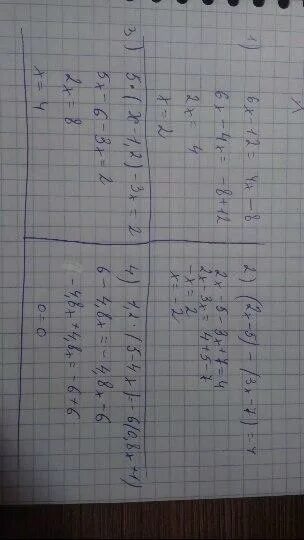 1)
6x+12 = 4x - 8
6x - 4x = -8+12
2x = 4
x = 2
2) (2x-5) - (3x-7) = 4
2x - 5 - 3x + 7 = 4
2x - 3x = 4+5-7
-x = 2
x = -2
3) 5·(x-1,2) - 3x = 2
5x - 6 - 3x = 2
2x = 8
x = 4
4) 1,2·(5-4x) = -6(0,8x+1)
6 - 4,8x = -4,8x - 6
-4,8x + 4,8x = -6+6
0=0